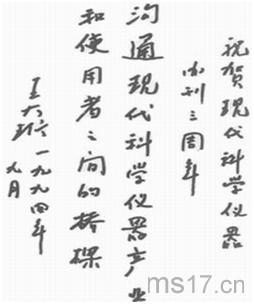 祝贺现代科学仪器
办刊三周年
沟通现代科学仪器产业
和使用者之间的桥梁
王大珩
一九九四年
九月
ms17.cn